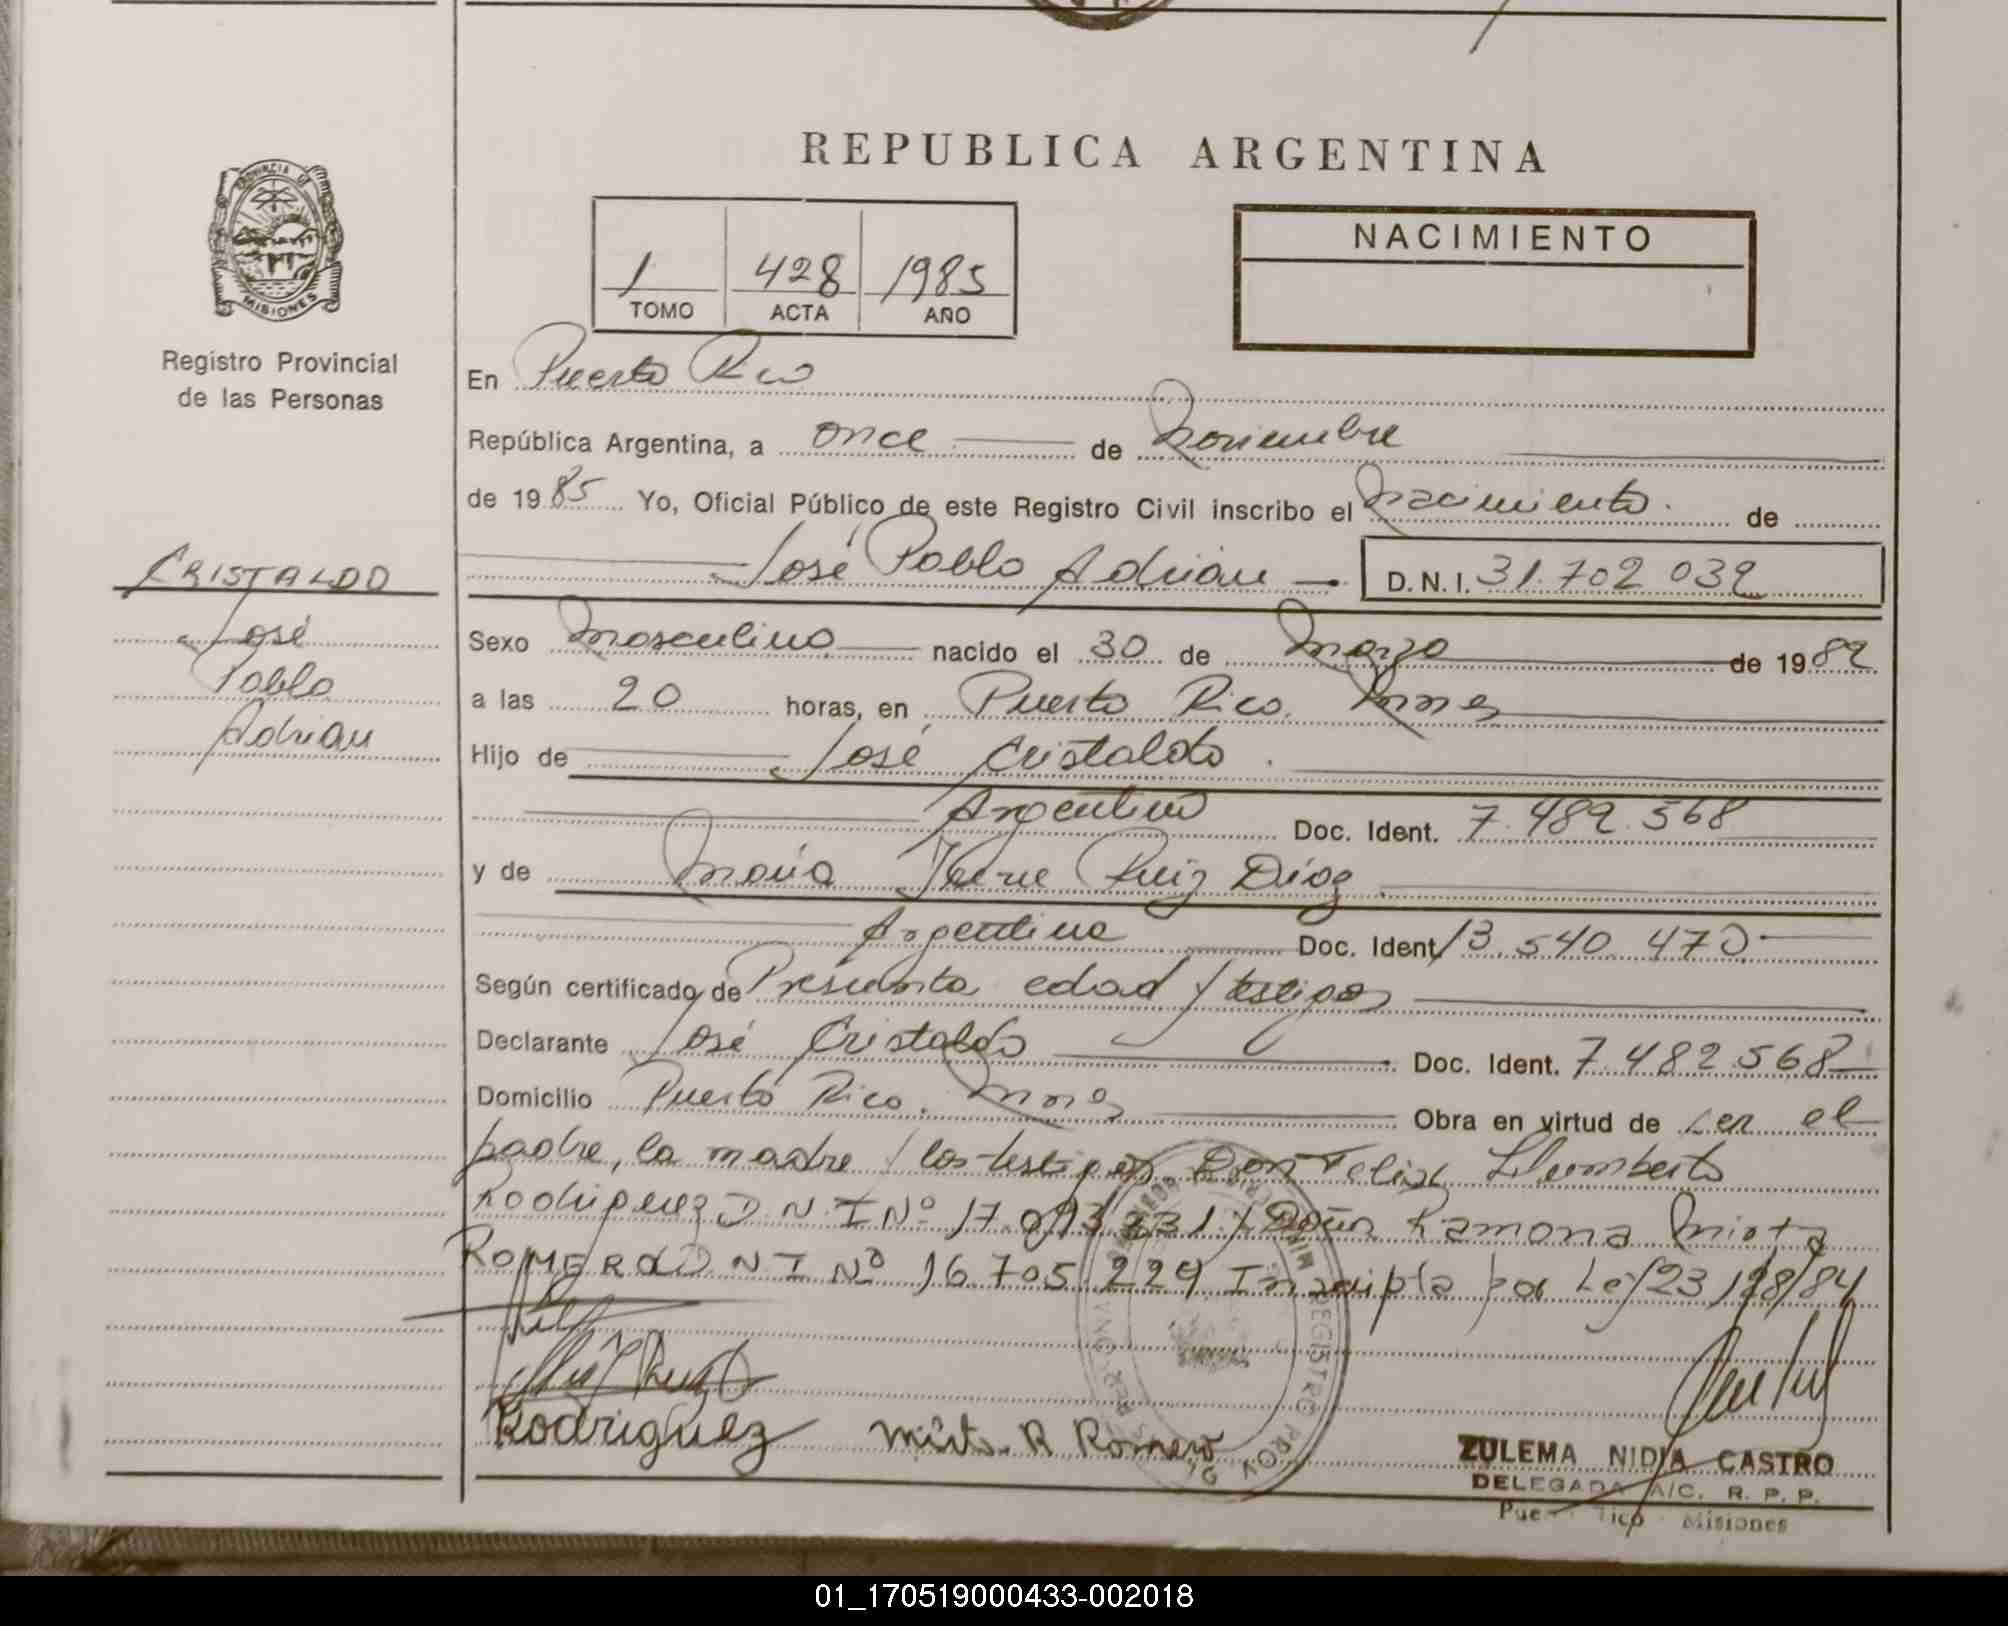 REPUBLICA ARGENTINA
PROVINCIA DE
MISIONES
Registro Provincial
de las Personas
1 428 1985
TOMO ACTA AÑO
NACIMIENTO
En Puerto Rico
República Argentina, a once de Noviembre
de 1985 Yo, Oficial Público de este Registro Civil inscribo el Nacimiento. de
José Pablo Adrián D.N.I. 31.702 039
CRISTALDO
José
Pablo
Adrián
Sexo Masculino nacido el 30 de Marzo de 1982
a las 20 horas, en Puerto Rico. Mnes
Hijo de José Cristaldo.
Argentino Doc. Ident. 7.482.568
y de María Irene Ruiz Díaz.
Argentina Doc. Ident. 13.540.470
Según certificado de Presunta edad y testigos
Declarante José Cristaldo Doc. Ident. 7.482.568
Domicilio Puerto Rico. Mnes Obra en virtud de ser el
padre, la madre y los testigos Don Felix Humberto
Rodriguez D N I Nº 17.093 231 y Doña Ramona Mirta
ROMERO D N I Nº 16 705 229 Inscripta por Ley 23 128/84
Rodriguez Mirta R Romero
REGISTRO PROV. DE
ZULEMA NIDIA CASTRO
DELEGADA A/C. R. P. P.
Misiones
01_170519000433-002018